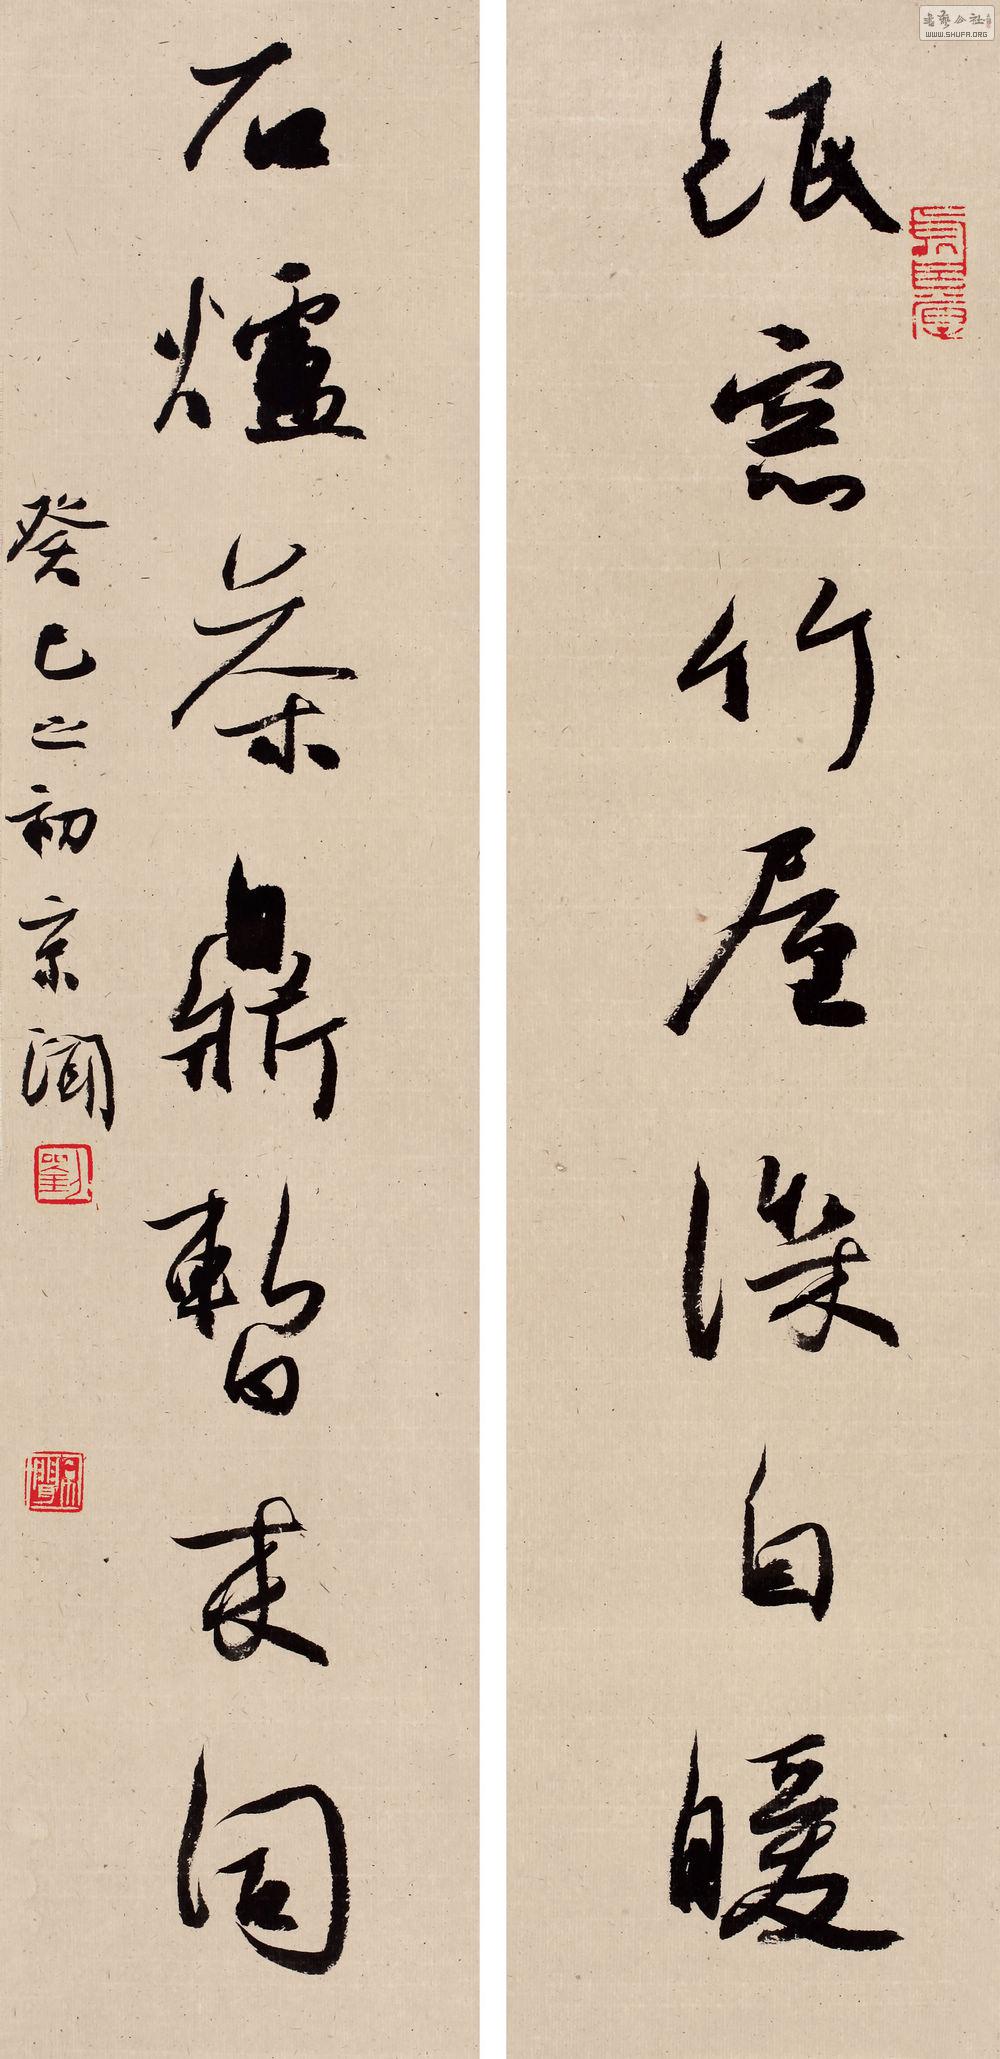 紙窓竹屋深自暖
石爐茶鼎暫来同
癸巳之初京聞
劉
書藝公社
WWW.SHUFA.ORG